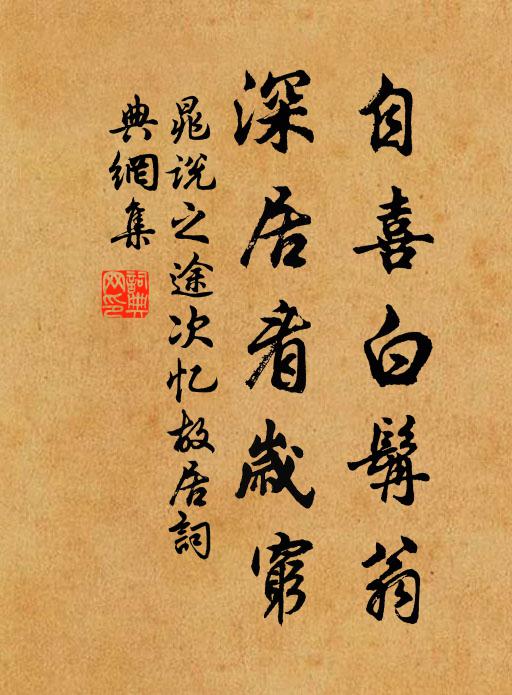 自喜白髯翁
深居看歲窮
晁說之途次忆故居詞
典網集
詞典网印